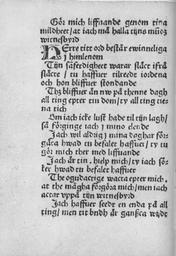 Gör mich liffuande genom tina
mildheet/ at iach må halla tijns mũnz
witnesbyrd
HErre titt ord består ewinneliga
j himlenom
Tijn säfredigheet warar släct ifrå
släct/ tu haffuer tilreede iordena
och hon bliffuer stondande
Thz bliffuer än nw på thenne dagh
all ting epter tin dom/ ty all ting tiena
tich
Om iach icke lust hade til tijn lagh/
så förginge iach j mino elende
Jach wil aldrig j mina doghar för
gäta hwad tu befalet haffuer/ ty tu
gör mich ther med liffuande
Jach är tin, hielp mich/ ty iach sö
ker hwad tu befalet haffuer
The ogudactige wacta epter mich,
at the mågha förgöra mich/ men iach
actar vppå tijn witnesbyrd
Jach haffuer seedt en enda på all
ting/ men tit budh är ganska wijdt